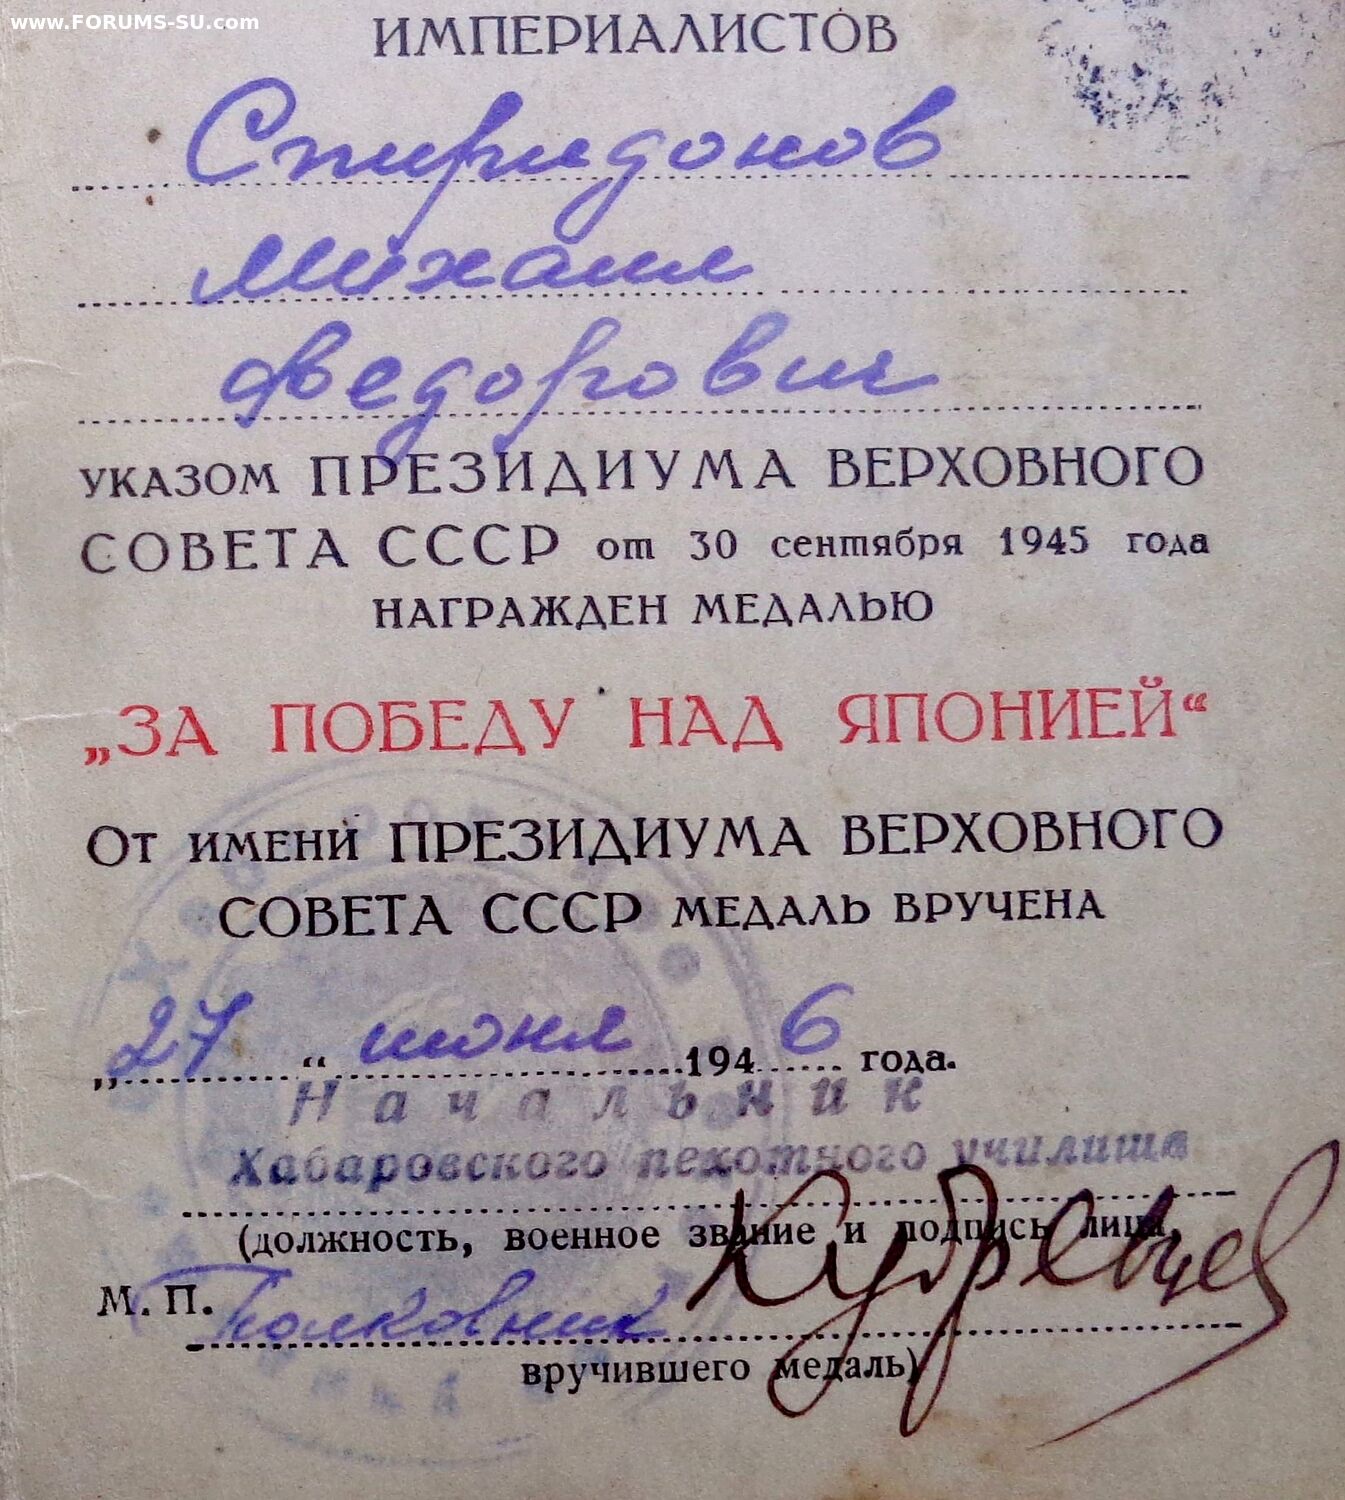 www.FORUMS-SU.com
ИМПЕРИАЛИСТОВ
Спиридонов
Михаил
Федорович
УКАЗОМ ПРЕЗИДИУМА ВЕРХОВНОГО
СОВЕТА СССР от 30 сентября 1945 года
НАГРАЖДЕН МЕДАЛЬЮ
„ЗА ПОБЕДУ НАД ЯПОНИЕЙ“
От имени ПРЕЗИДИУМА ВЕРХОВНОГО
СОВЕТА СССР МЕДАЛЬ ВРУЧЕНА
„27“ июня 1946 года.
Начальник
Хабаровского пехотного училища
(должность, военное звание и подпись лица,
М. П. Полковник Кудревцев
вручившего медаль)